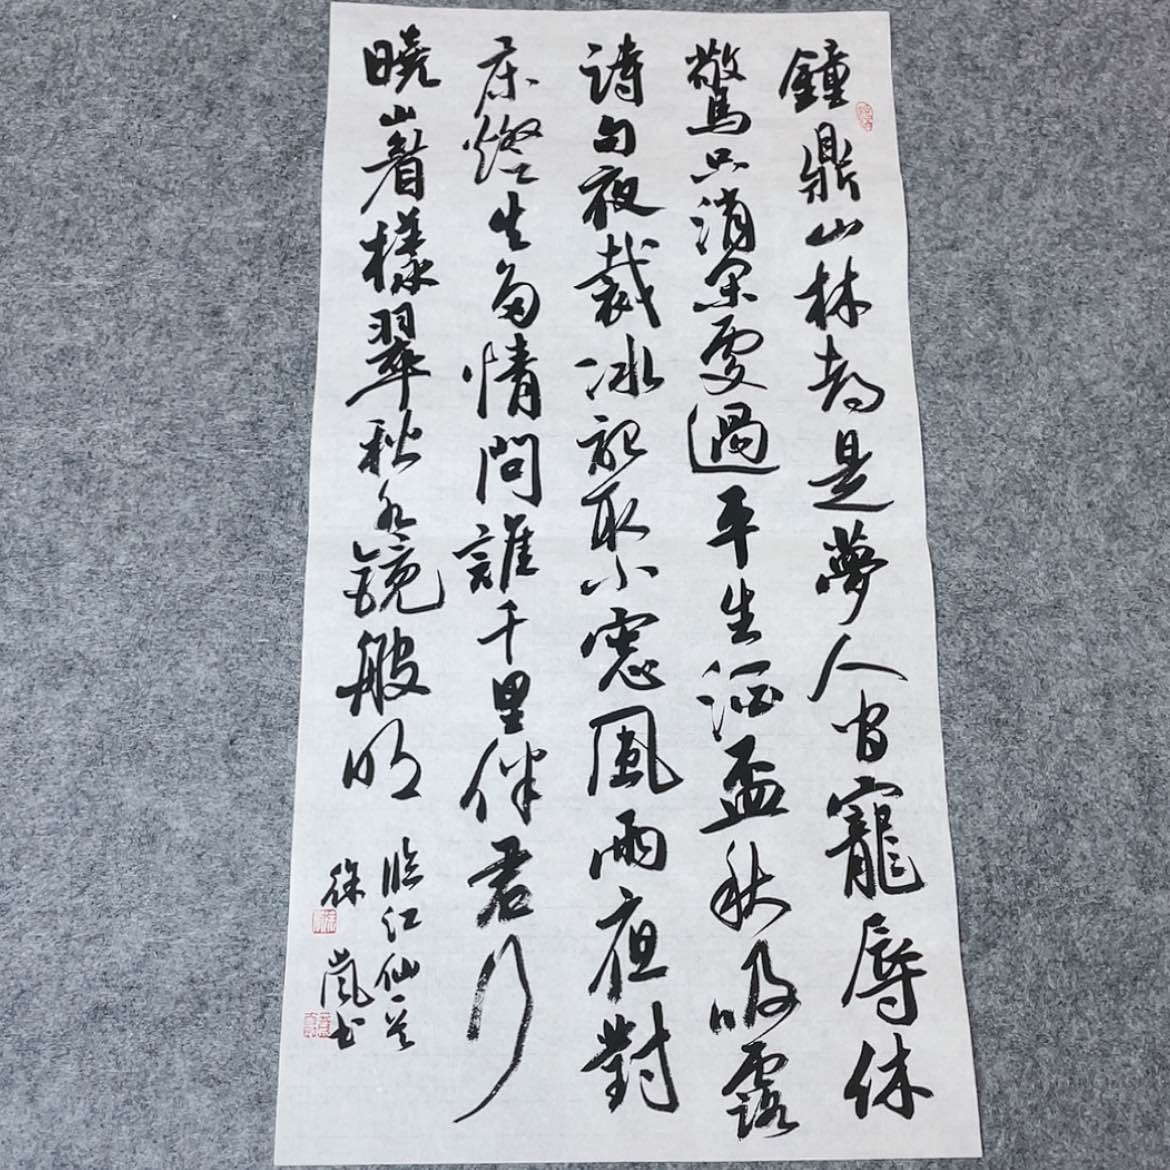 鐘鼎山林都是夢人間寵辱休
驚只消閑處過平生酒盃秋吸露
詩句夜裁冰記取小窓風雨夜對
床燈火多情問誰千里伴君行
曉山眉樣翠秋水鏡般明
临江仙
徐嵐书